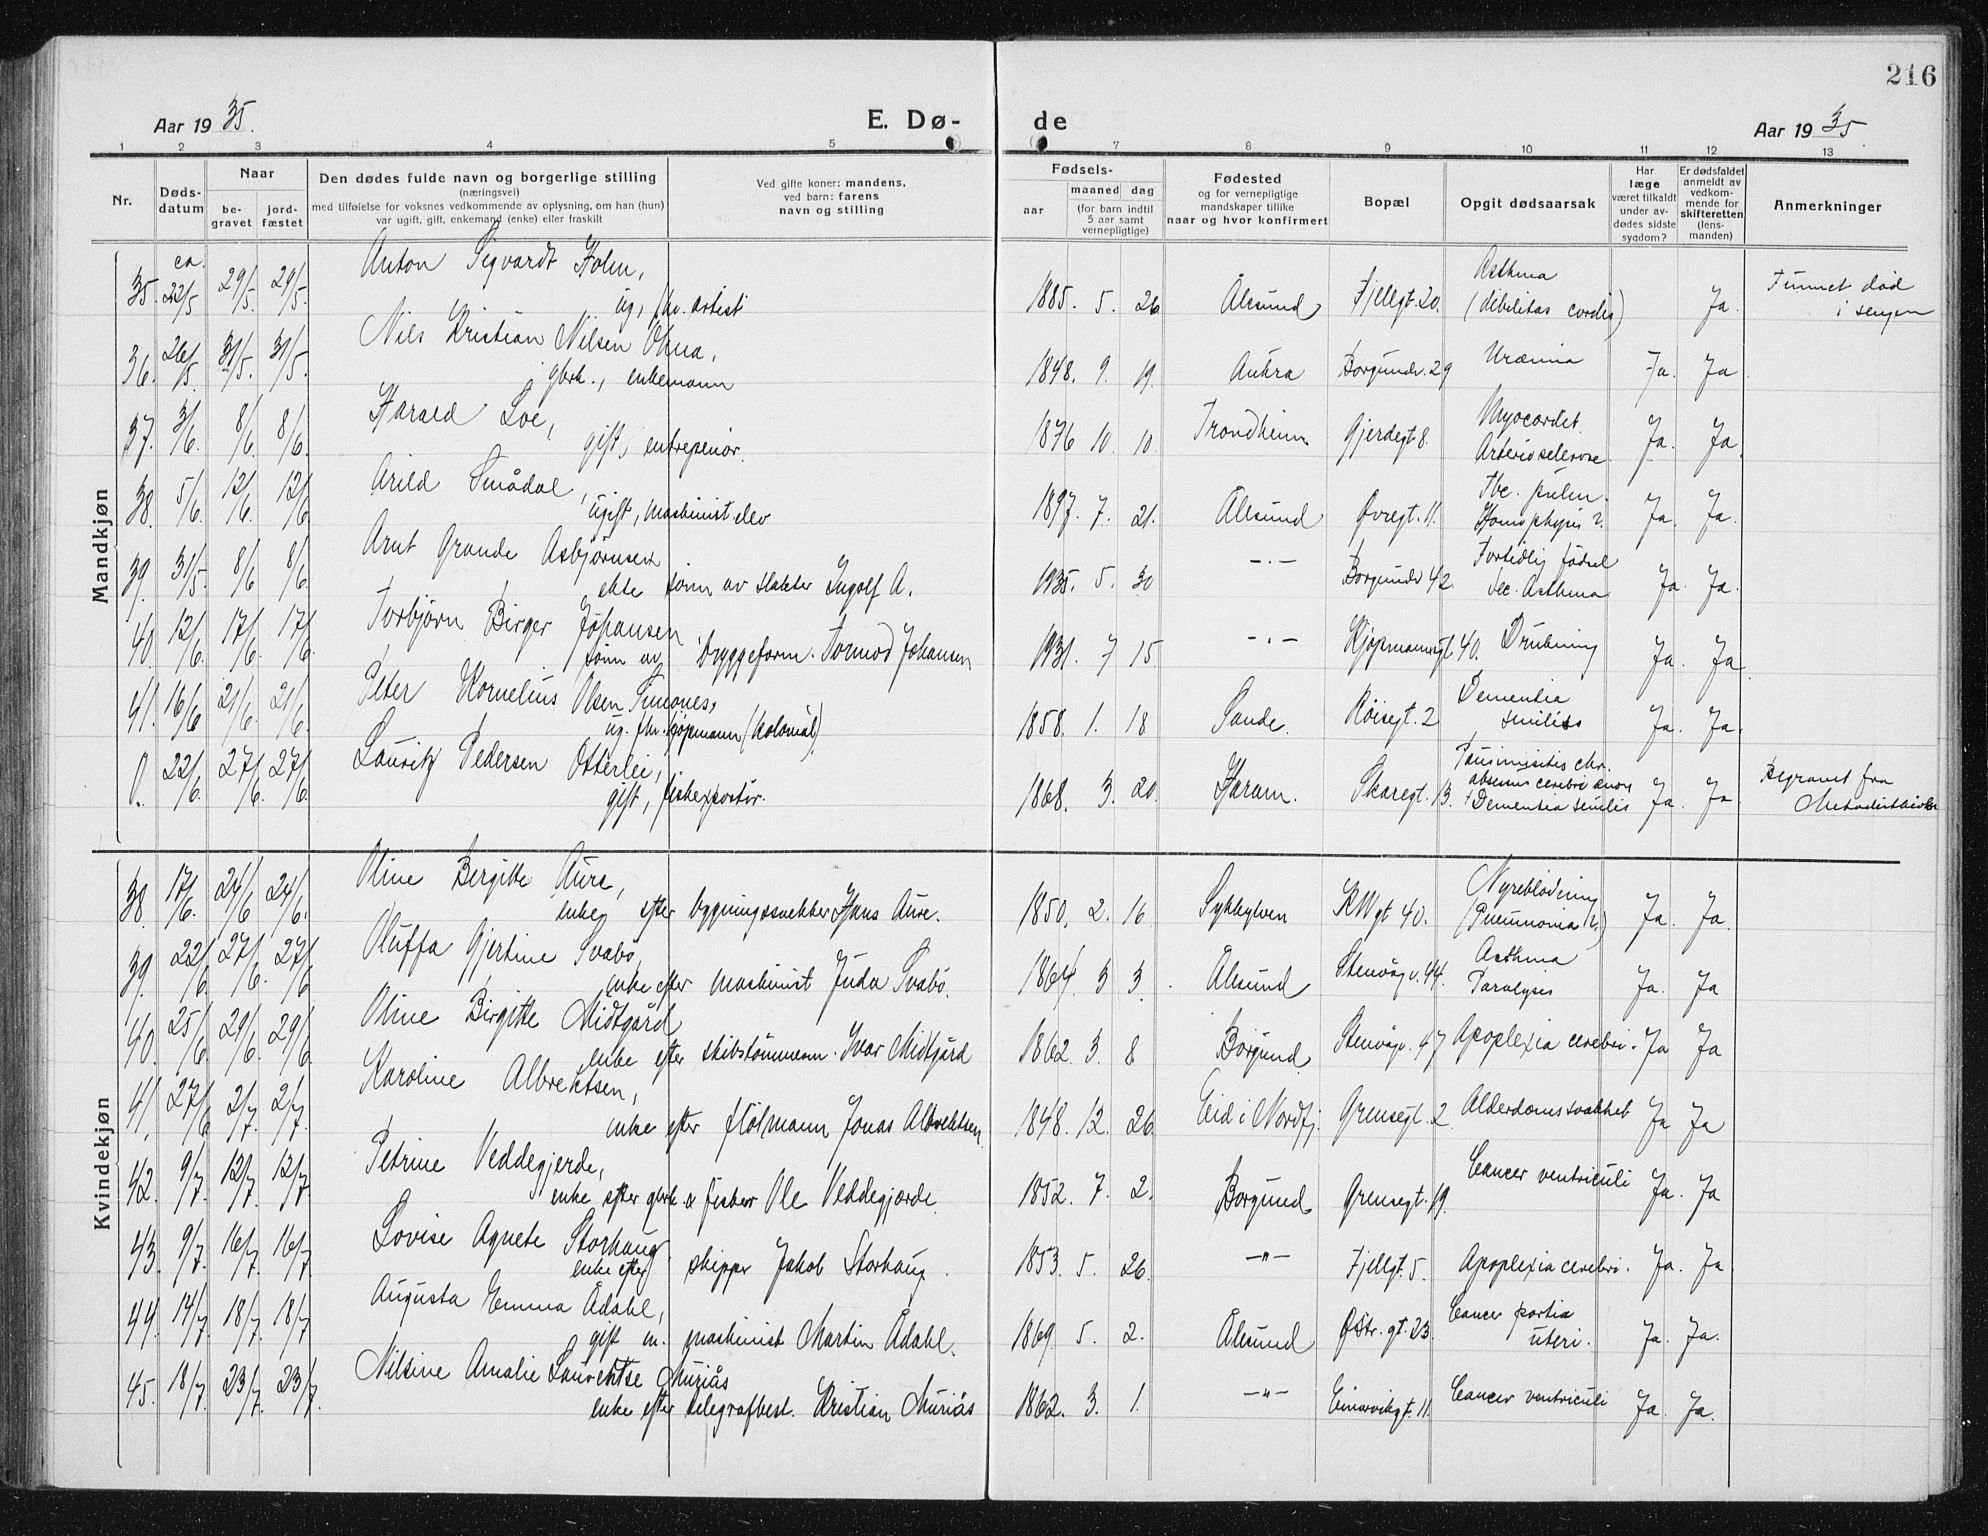 216
Aar 1935.
E. Dø-
de
Aar 1935.
1 2 3 4 5 7 8 9 10 11 12 13
Nr.
Døds-
datum
Naar
be-
gravet
jord-
fæstet
Den dødes fulde navn og borgerlige stilling
(næringsvei)
med tilføielse for voksnes vedkommende av oplysning, om han (hun)
var ugift, gift, enkemand (enke) eller fraskilt
Ved gifte koner: mandens,
ved barn: farens
navn og stilling
Fødsels-
aar
maaned dag
(for barn indtil
5 aar samt
vernepligtige)
Fødested
og for vernepligtige
mandskaper tillike
naar og hvor konfirmert
Bopæl
Opgit dødsaarsak
Har
læge
været tilkaldt
under av-
dødes sidste
sygdom?
Er dødsfaldet
anmeldt av
vedkom-
mende for
skifteretten
(lens-
manden)
Anmerkninger
Mandkjøn
35. ca. 22/5 29/5. 29/5. Anton Sigvardt Holm,
ug, fhv. artist 1885. 5. 26 Ålesund Fjellgt. 20. Asthma
(debilitas cordis) Ja. Funnet død
i sengen
36. 26/5. 31/5. 31/5. Nils Kristian Nilsen Ohna,
gbrk., enkemann 1848. 9. 19. Aukra Borgundv. 29 Uræmia Ja. Ja
37. 3/6. 8/6. 8/6. Harald Loe,
gift, entreprenør. 1876 10. 10. Trondheim Gjerdegt 8. Myocardit.
Arteriosclerose. Ja. Ja
38. 5/6. 12/6. 12/6 Arild Smådal,
ugift, maskinist elev 1897. 7. 21. Ålesund Øvregt. 11. Tbc. pulm.
Ja. Ja.
39. 31/5. 8/6 8/6. Arnt Grande Asbjørnsen
ekte sønn av slakter Ingolf A. 1935. 5. 30 -"- Borgundv 42 Fortidlig fødsel
Asthma Ja. Ja.
40. 12/6. 17/6. 17/6. Torbjørn Birger Johansen
sønn av bryggeform. Tormod Johansen 1931. 7 15 -"- Kjøpmannsgt 40. Drukning Ja. Ja.
41. 16/6 21/6. 21/6. Peter Kornelius Olsen
ug. fhv. kjøpmann (kolonial) 1858. 1. 18 Sande. Røisegt. 2 Dementia
senilis Ja. Ja.
0. 22/6. 27/6. 27/6. Lauritz Pedersen Otterlei,
gift, fiskexportør. 1868. 3. 20. Haram. Skaregt. 13. chr.
Dementia senilis Ja. Ja. Begravet fra
Metodistkirken
Kvindekjøn
38. 17/6. 24/6 24/6. Oline Bergitte Aure,
enke efter bygningssnekker Hans Aure. 1850. 2. 16 Sykkylven KWgt 40. Nyreblødning
(Pneumonia) Ja. Ja.
39. 22/6. 27/6. 27/6 Oluffa Gjertine Svabø,
enke efter maskinist Juda Svabø. 1864. 3 3. Ålesund Stenvåg v. 44. Asthma
Paralysis Ja. Ja
40. 25/6 29/6. 29/6. Oline Birgitte Midtgård
enke efter skibstømmerm. Ivar Midtgård 1862. 3. 8 Borgund Stenvågv. 47 Apoplexia cerebri. Ja Ja
41. 27/6 2/7. 2/7. Karoline Albrektsen,
enke efter fløtmann Jonas Albrektsen 1848. 12. 26. Eid i Nordfj. Grensegt. 2 Alderdomssvakhet Ja Ja
42. 9/7. 12/7. 12/7. Petrine Veddegjerde,
enke efter gbrk. & fisker Ole Veddegjærde 1852. 7. 2. Borgund Grensegt. 19. Cancer ventriculi Ja. Ja
43. 9/7. 16/7. 16/7. Lovise Agnete Storhaug.
enke efter skipper Jakob Storhaug. 1853. 5. 26. -"- Fjellgt. 5. Apoplexia cerebri. Ja. Ja.
44. 14/7. 18/7. 18/7 Augusta Emma Ådahl,
gift m. maskinist Martin Ådahl. 1869. 5. 2. Ålesund Østr. gt. 23. Cancer portio
uteri. Ja. Ja.
45. 18/7. 23/7. 23/7. Nilsine Amalie Muriås
enke efter telegrafbest. Kristian Muriås 1862. 3. 1. -"- Einarvikgt. 11. Cancer ventriculi Ja Ja.